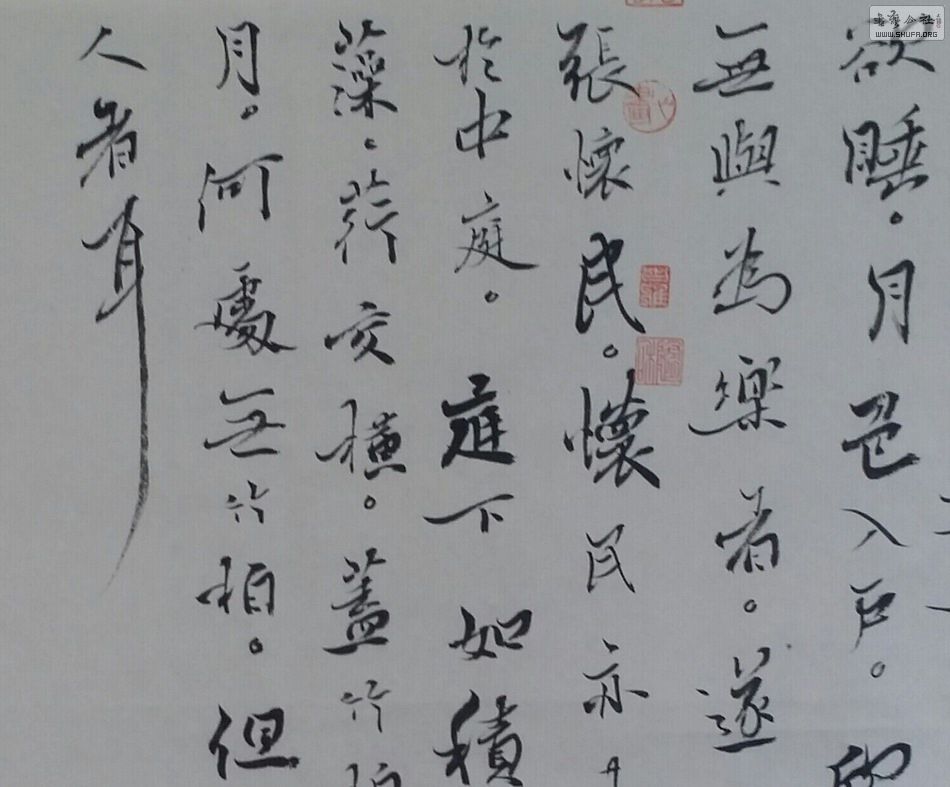 欲睡。月色入戶。
無與為樂者。遂
張懷民。懷民亦
於中庭。庭下如積
藻、荇交橫。蓋竹
月。何處無竹柏。但
人者耳
書藝公社
WWW.SHUFA.ORG